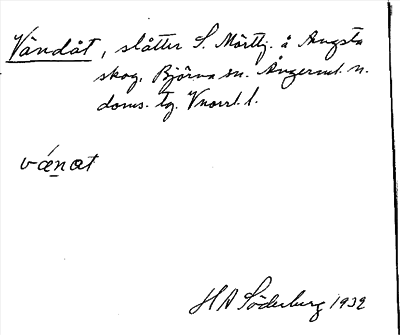 Vändåt, slåtter S. Mörttj. å Angsta
skog, Björna sn. Ångerml. n.
doms. tg. Vnorrl. l.
vánat
H A Söderberg 1932